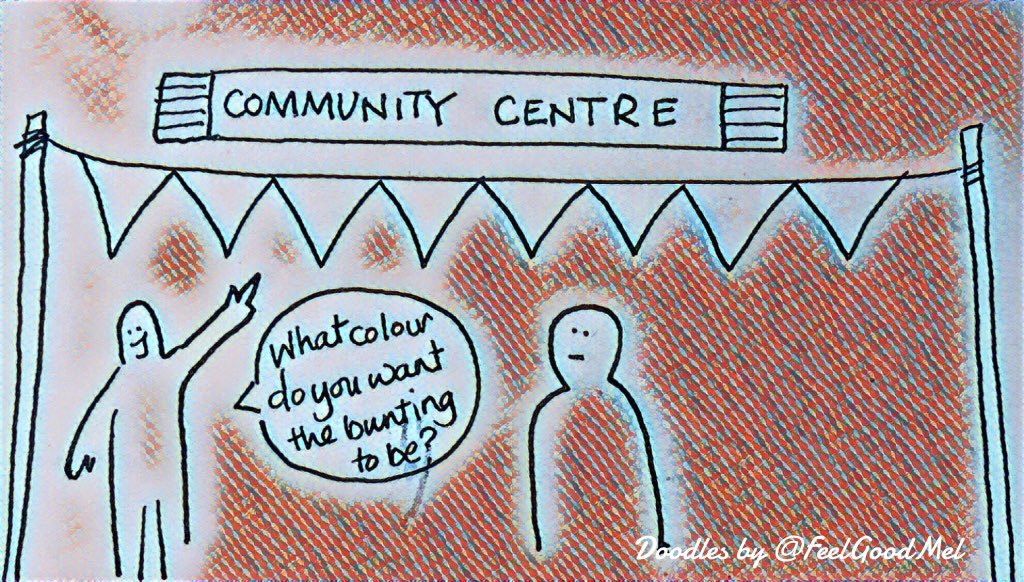 COMMUNITY CENTRE
What colour
do you want
the bunting
to be?
Doodles by @FeelGoodMel